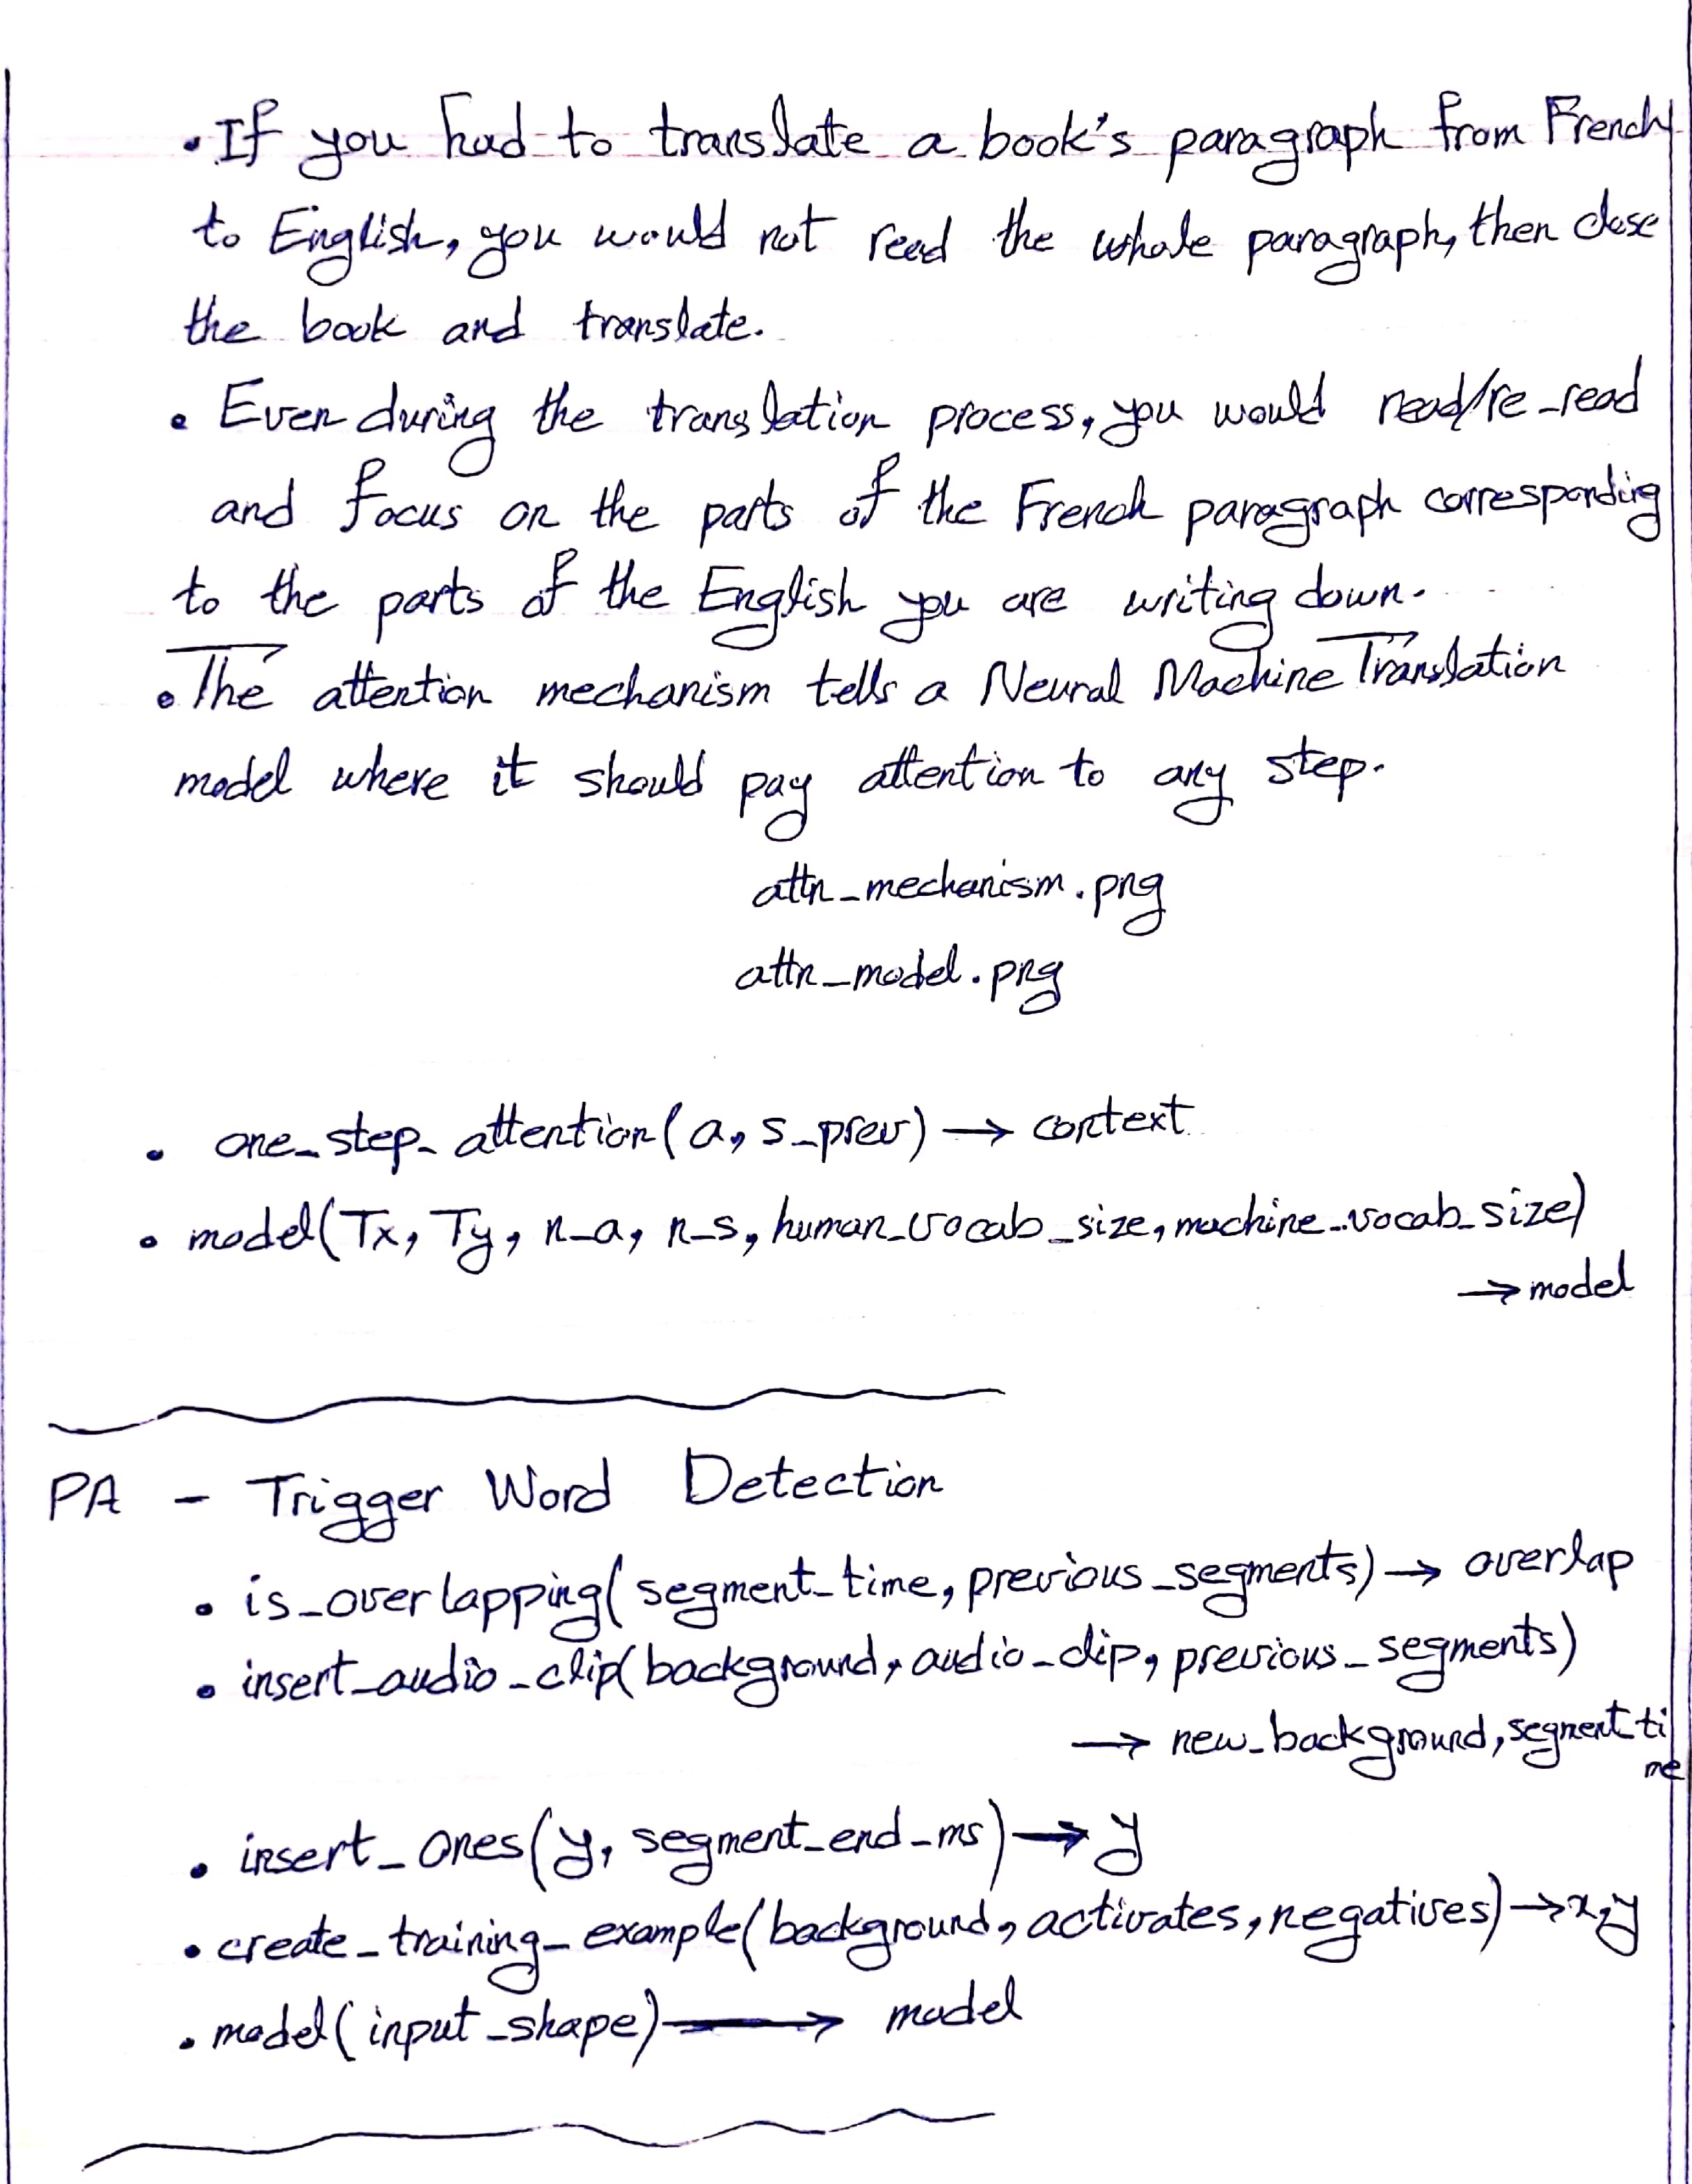 • If you had to translate a book's paragraph from French
to English, you would not read the whole paragraph, then close
the book and translate.
• Even during the translation process, you would read/re_read
and focus on the parts of the French paragraph corresponding
to the parts of the English you are writing down.
• The attention mechanism tells a Neural Machine Translation
model where it should pay attention to any step.
attn_mechanism.png
attn_model.png
• one_step_attention(a, s_prev) → context
• model(Tx, Ty, n_a, n_s, human_vocab_size, machine_vocab_size)
→ model
PA - Trigger Word Detection
• is_overlapping(segment_time, previous_segments) → overlap
• insert_audio_clip(background, audio_clip, previous_segments)
→ new_background, segment_ti
me
• insert_ones(y, segment_end_ms) → y
• create_training_example(background, activates, negatives) → x, y
• model(input_shape) → model